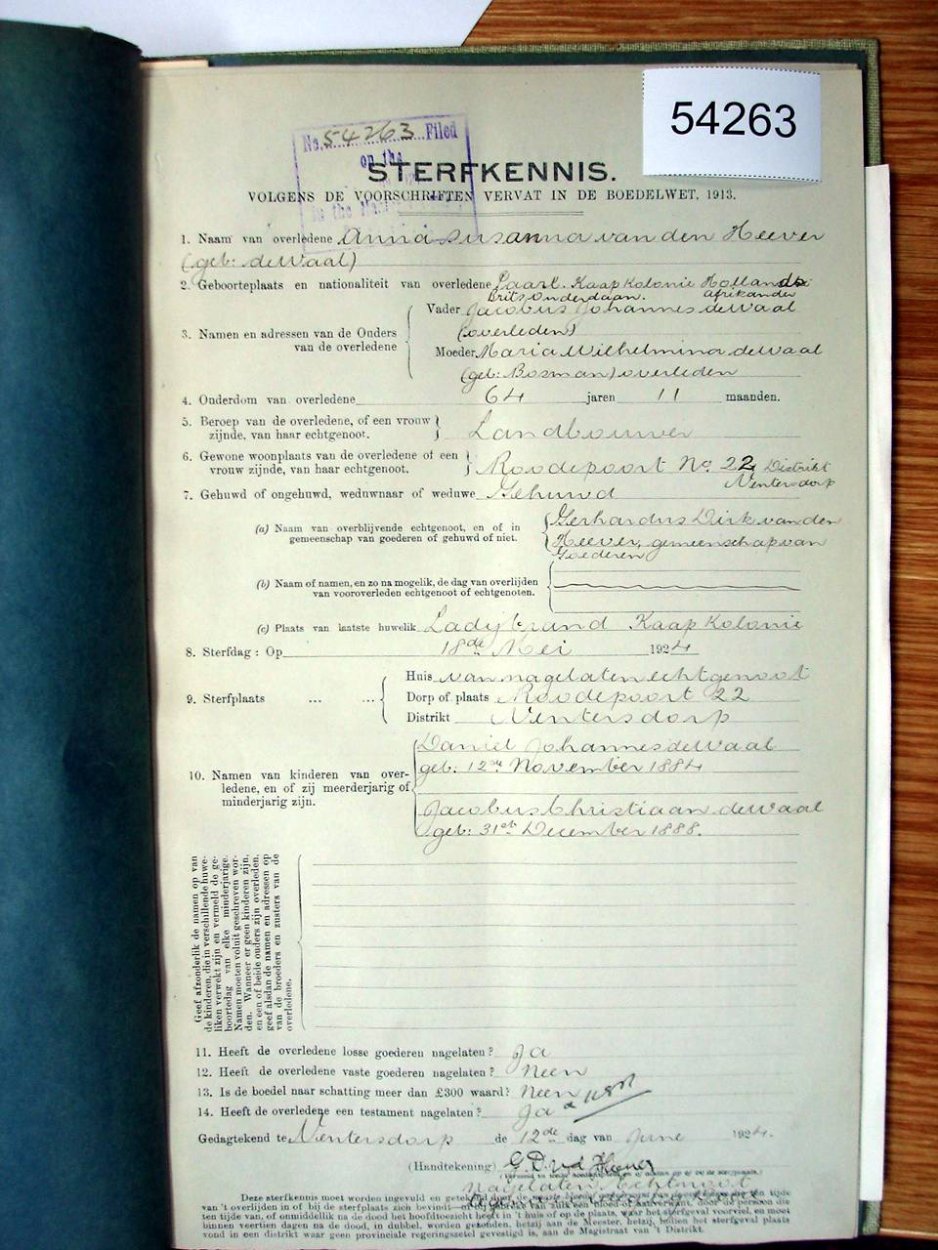 54263
No. 54263 Filed
on the
STERFKENNIS.
VOLGENS DE VOORSCHRIFTEN VERVAT IN DE BOEDELWET, 1913.
1. Naam van overledene Anna Susanna van den Heever
(geb: de Waal)
2. Geboorteplaats en nationaliteit van overledene Paarl. Kaap Kolonie Hollandse
Brits Onderdaan. afrikander
3. Namen en adressen van de Ouders van de overledene
Vader Jacobus Johannes de Waal
(overleden)
Moeder Maria Wilhelmina de Waal
(geb: Bosman) overleden
4. Ouderdom van overledene 64 jaren 11 maanden.
5. Beroep van de overledene, of een vrouw
zijnde, van haar echtgenoot. Landbouwer
6. Gewone woonplaats van de overledene of een
vrouw zijnde, van haar echtgenoot. Roodepoort No. 22 Distrikt
Ventersdorp
7. Gehuwd of ongehuwd, weduwnaar of weduwe Gehuwd
(a) Naam van overblijvende echtgenoot, en of in
gemeenschap van goederen of gehuwd of niet.
Gerhardus Dirk van den
Heever, gemeenschap van
Goederen
(b) Naam of namen, en zo na mogelik, de dag van overlijden
van vooroverleden echtgenoot of echtgenoten.
(c) Plaats van laatste huwelik Ladybrand Kaap Kolonie
8. Sterfdag: Op 18de Mei 1924
9. Sterfplaats ... ...
Huis van nagelaten echtgenoot
Dorp of plaats Roodepoort 22
Distrikt Ventersdorp
10. Namen van kinderen van over-
ledene, en of zij meerderjarig of
minderjarig zijn.
Daniel Johannes de Waal
geb: 12de November 1884
Jacobus Christiaan de Waal
geb: 31st December 1888.
Geef afzonderlik de namen op van
de kinderen, die in verschillende huwe-
liken verwekt zijn en vermeld de ge-
boortedag van elke minderjarige.
Namen moeten voluit geschreven wor-
den. Wanneer er geen kinderen zijn,
en een of beide ouders zijn overleden,
geef alsdan de namen en adressen op
van de broeders en zusters van de
overledene.
11. Heeft de overledene losse goederen nagelaten? Ja
12. Heeft de overledene vaste goederen nagelaten? Neen
13. Is de boedel naar schatting meer dan £300 waard? Neen
14. Heeft de overledene een testament nagelaten? Ja
Gedagtekend te Ventersdorp de 12de dag van June 1924.
(Handtekening) G. D. v d Heever
nagelaten Echtgenoot
Deze sterfkennis moet worden ingevuld en getekend
van 't overlijden in of bij de sterfplaats zich bevindt
ten tijde van, of onmiddellik na de dood het hoofdtoezicht heeft in 't huis of op de plaats, waar het sterfgeval voorviel, en moet
binnen veertien dagen na de dood, in dubbel, worden gezonden, hetzij aan de Meester, hetzij, indien het sterfgeval plaats
vond in een distrikt waar geen provinciale regeringszetel gevestigd is, aan de Magistraat van 't Distrikt.